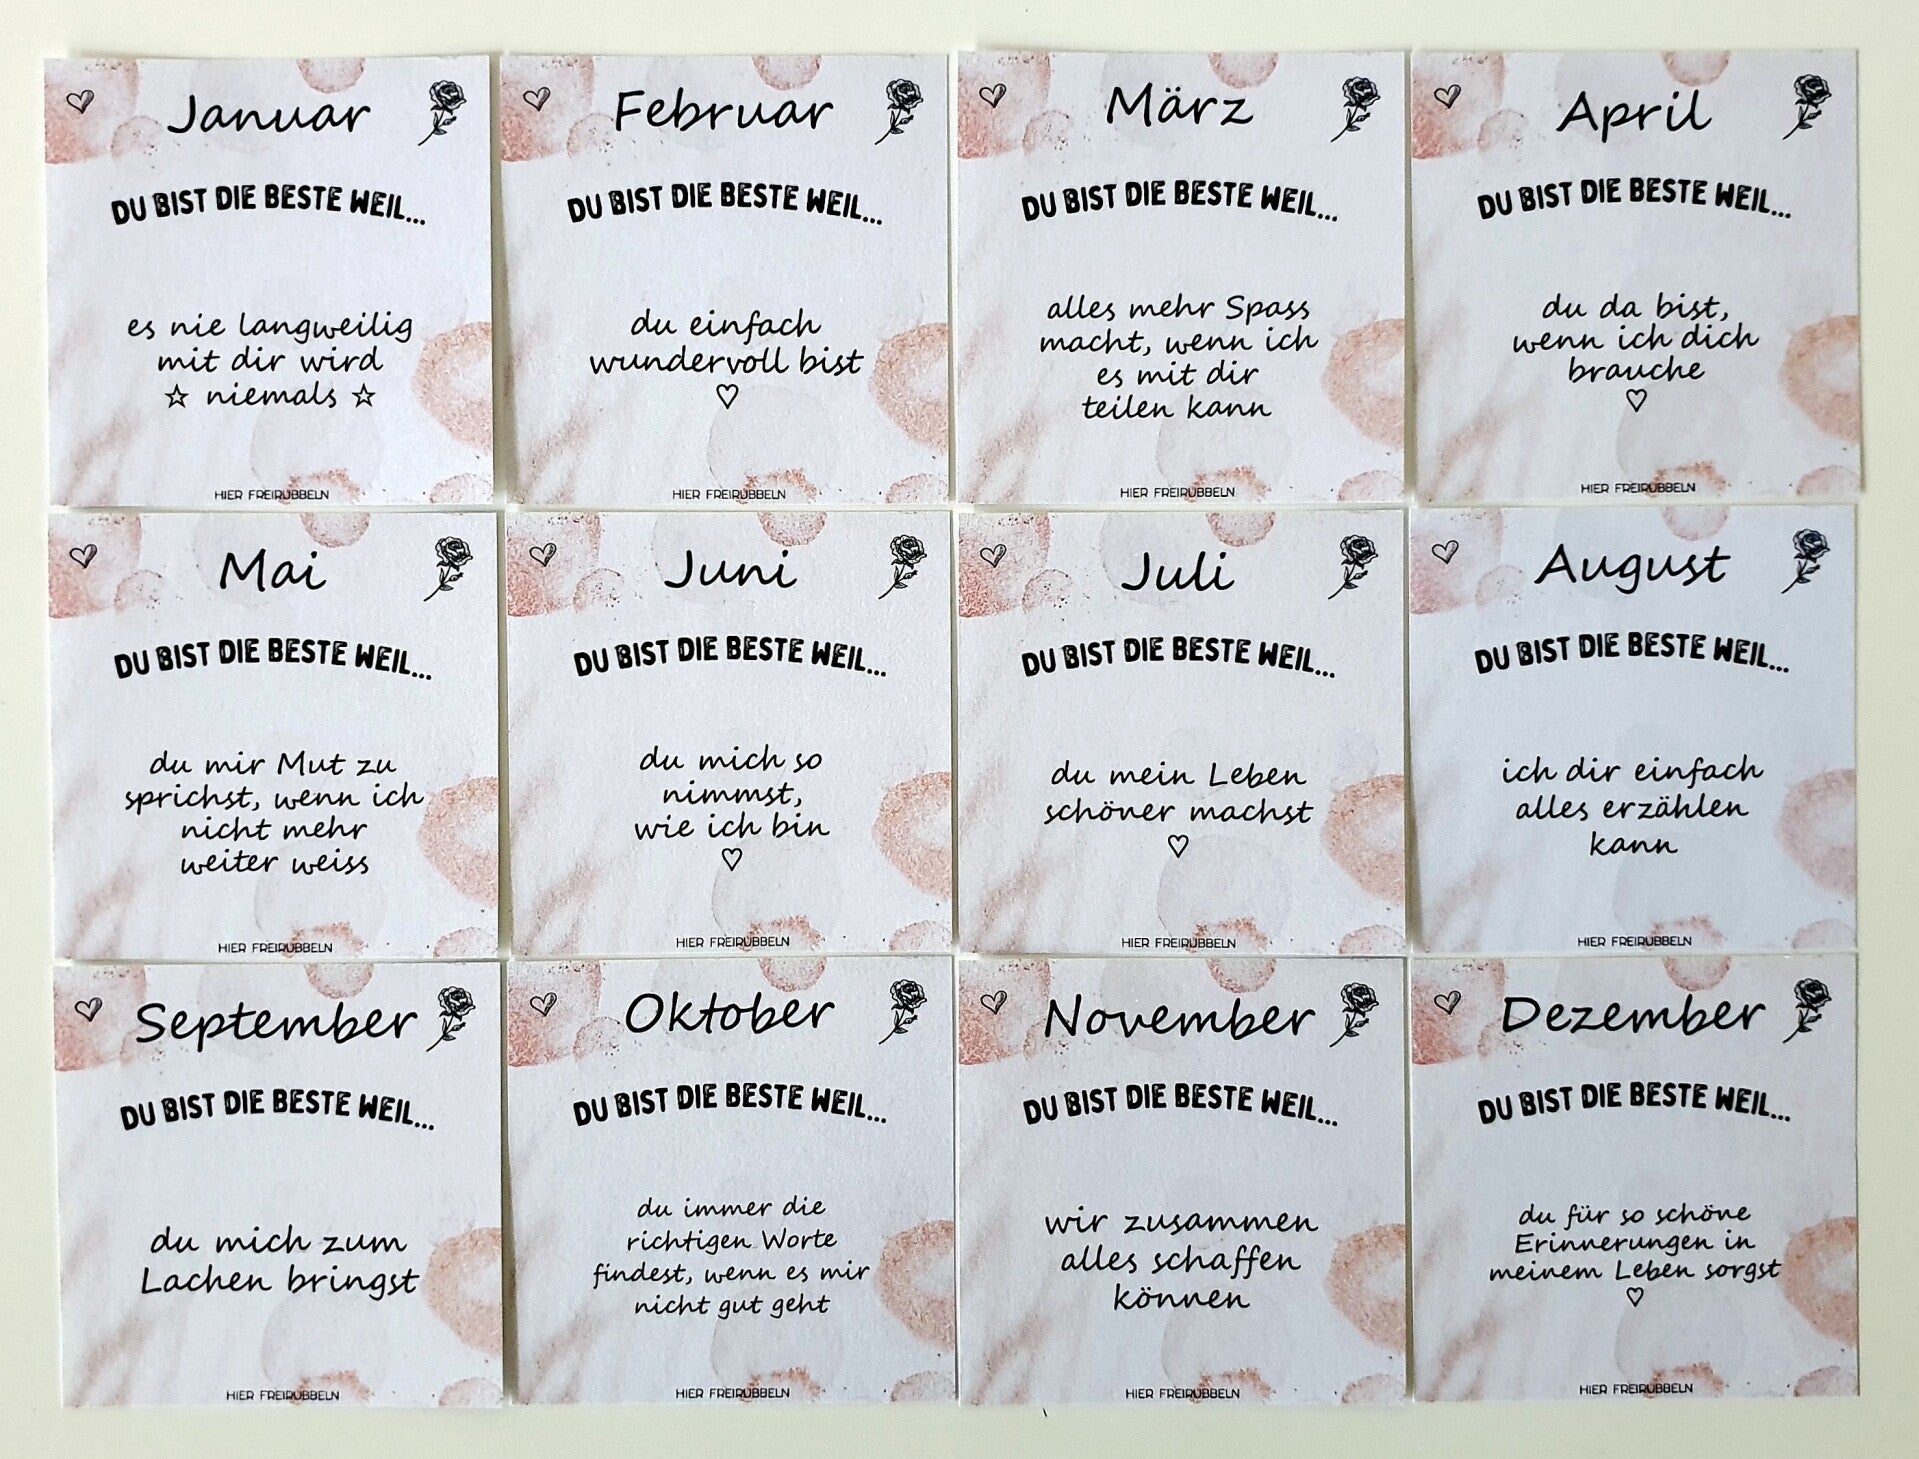 Januar
DU BIST DIE BESTE WEIL...
es nie langweilig
mit dir wird
☆ niemals ☆
HIER FREIRUBBELN
Februar
DU BIST DIE BESTE WEIL...
du einfach
wundervoll bist
♡
HIER FREIRUBBELN
März
DU BIST DIE BESTE WEIL...
alles mehr Spass
macht, wenn ich
es mit dir
teilen kann
HIER FREIRUBBELN
April
DU BIST DIE BESTE WEIL...
du da bist,
wenn ich dich
brauche
♡
HIER FREIRUBBELN
Mai
DU BIST DIE BESTE WEIL...
du mir Mut zu
sprichst, wenn ich
nicht mehr
weiter weiss
HIER FREIRUBBELN
Juni
DU BIST DIE BESTE WEIL...
du mich so
nimmst,
wie ich bin
♡
HIER FREIRUBBELN
Juli
DU BIST DIE BESTE WEIL...
du mein Leben
schöner machst
♡
HIER FREIRUBBELN
August
DU BIST DIE BESTE WEIL...
ich dir einfach
alles erzählen
kann
HIER FREIRUBBELN
September
DU BIST DIE BESTE WEIL...
du mich zum
Lachen bringst
HIER FREIRUBBELN
Oktober
DU BIST DIE BESTE WEIL...
du immer die
richtigen Worte
findest, wenn es mir
nicht gut geht
HIER FREIRUBBELN
November
DU BIST DIE BESTE WEIL...
wir zusammen
alles schaffen
können
HIER FREIRUBBELN
Dezember
DU BIST DIE BESTE WEIL...
du für so schöne
Erinnerungen in
meinem Leben sorgst
♡
HIER FREIRUBBELN